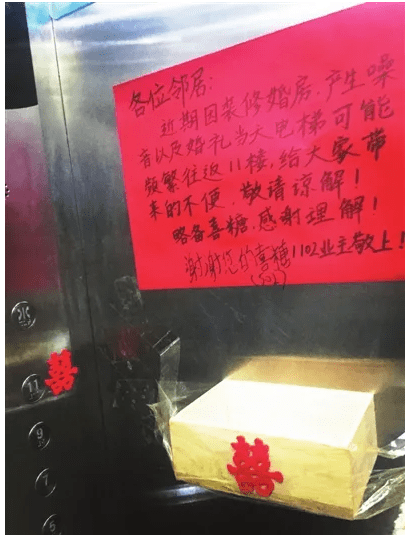 各位邻居:
近期因装修婚房,产生噪
音以及婚礼当天电梯可能
频繁往返11楼,给大家带
来的不便,敬请谅解!
略备喜糖,感谢理解!
谢谢您的喜糖 1102业主敬上!
囍
囍
11
9
7
5